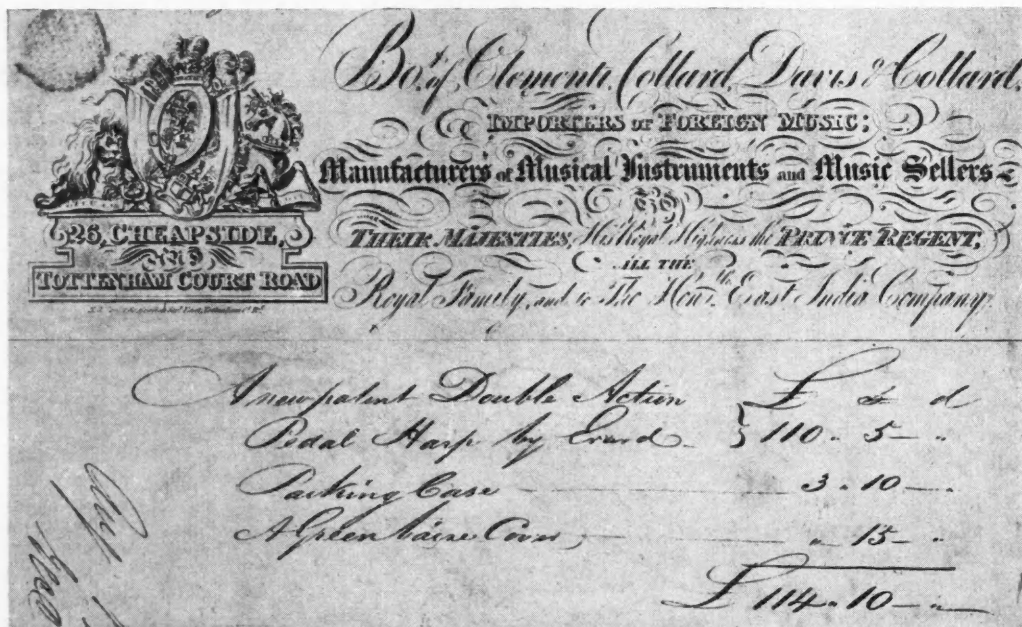 Bo.t of Clementi, Collard, Davis & Collard,
IMPORTERS OF FOREIGN MUSIC;
Manufacturers of Musical Instruments and Music Sellers
TO
THEIR MAJESTIES, His Royal Highness the PRINCE REGENT,
ALL THE
Royal Family, and to The Hon.ble East India Company.
26, CHEAPSIDE,
AND
TOTTENHAM COURT ROAD
A new patent Double Action £ s d
Pedal Harp by Erard } 110 " 5 — "
Packing Case 3 " 10 — "
A Green baize Cover, " 15 — "
£ 114 " 10 — "